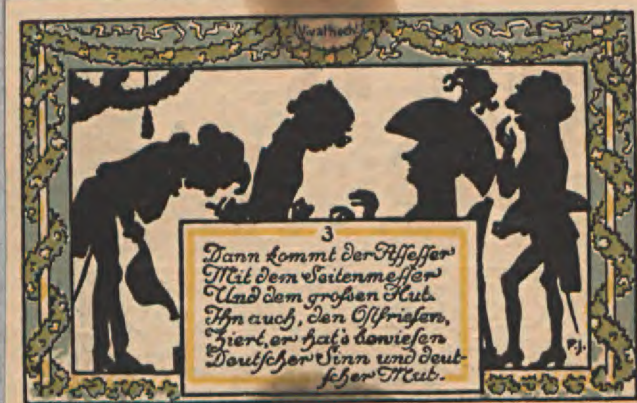 Vivat hoch!
3
Dann kommt der Assesser
Mit dem Seitenmesser
Und dem großen Hut.
Ihn auch, den Ostfriesen,
Ziert, er hat's bewiesen
Deutscher Sinn und deut-
scher Mut.
P.J.